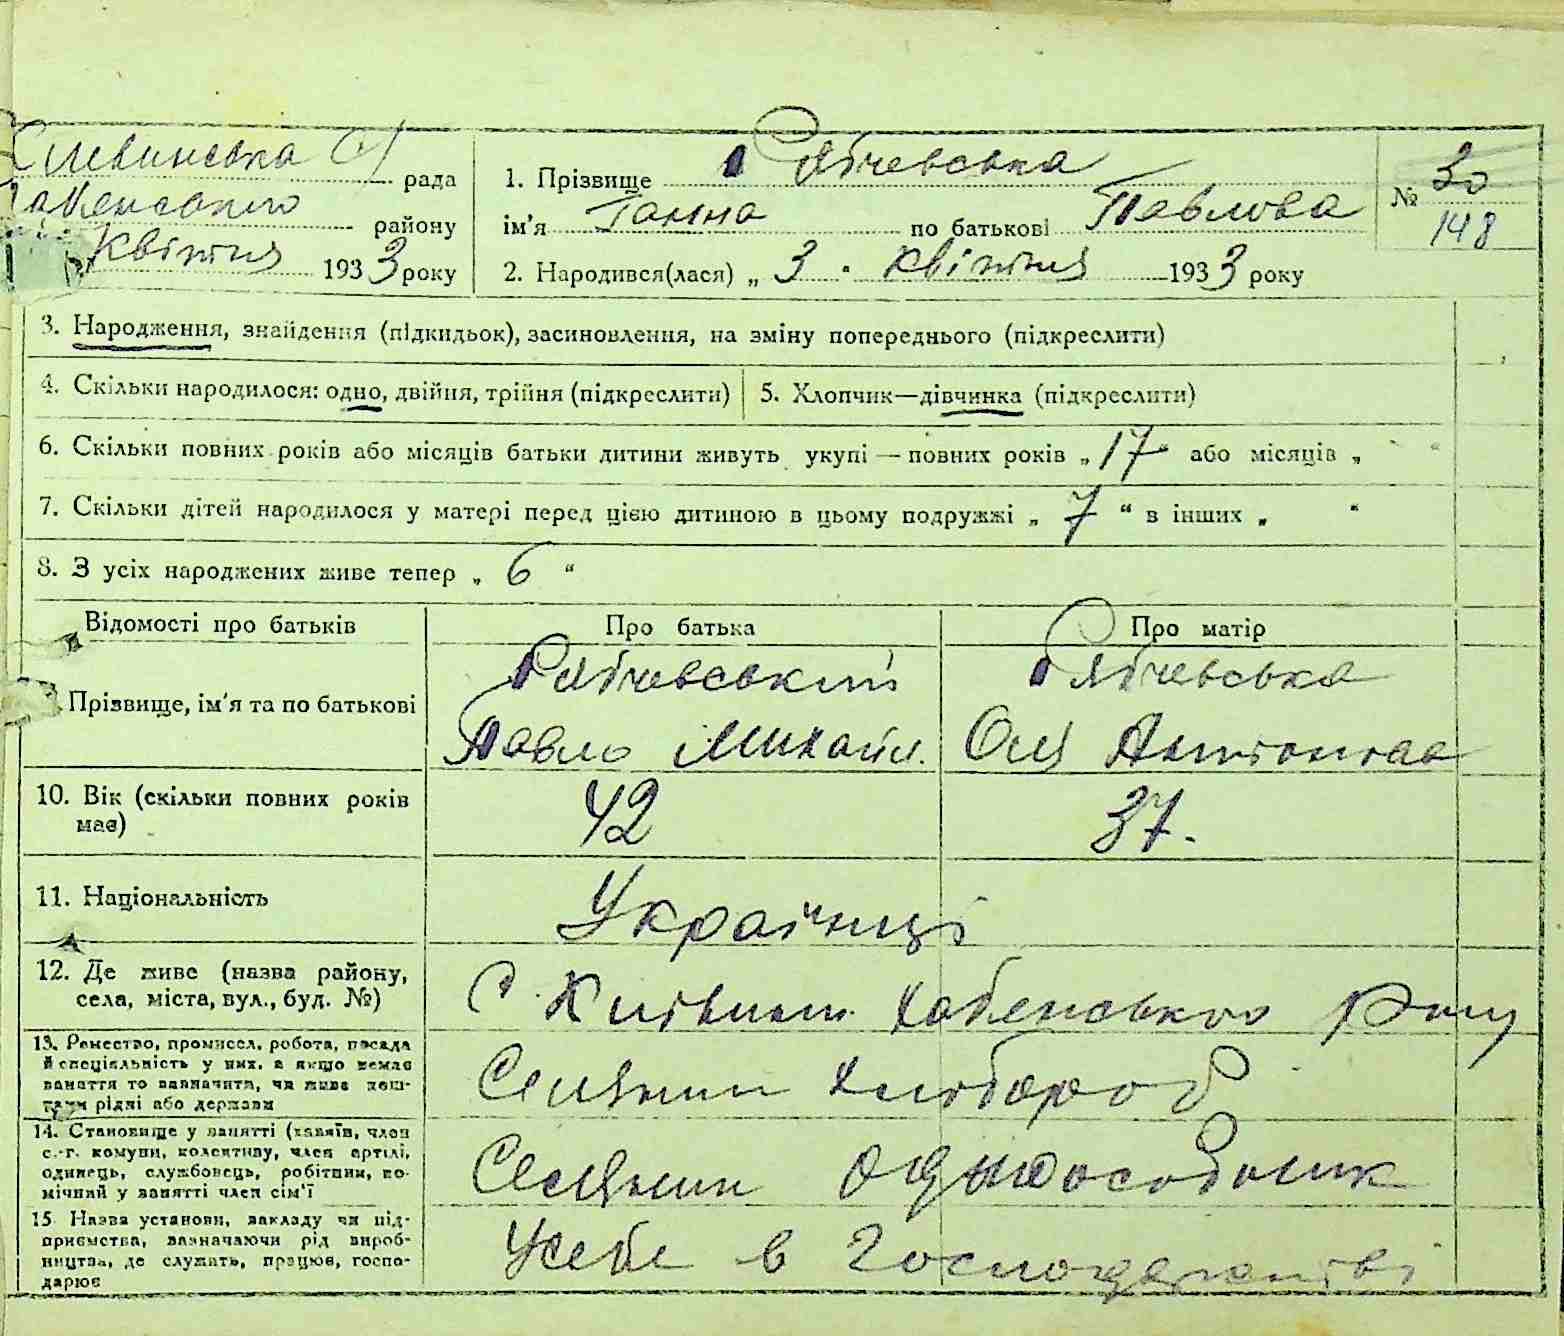 рада
району
Квітня 1933 року
1. Прізвище Рябчевська
ім'я Ганна по батькові Павлова
2. Народився(лася) „ 3 . квітня 1933 року
№ 30
148
3. Народження, знайдення (підкидьок), засиновлення, на зміну попереднього (підкреслити)
4. Скільки народилося: одно, двійня, трійня (підкреслити)
5. Хлопчик—дівчинка (підкреслити)
6. Скільки повних років або місяців батьки дитини живуть укупі — повних років „ 17 “ або місяців „ “
7. Скільки дітей народилося у матері перед цією дитиною в цьому подружжі „ 7 “ в інших „ “
8. З усіх народжених живе тепер „ 6 “
Відомості про батьків
Про батька
Про матір
Прізвище, ім'я та по батькові
Рябчевський
Павло Михайл.
Рябчевська
Антонова
10. Вік (скільки повних років
має)
42
37.
11. Національність
Українці
12. Де живе (назва району,
села, міста, вул., буд. №)
С. Хабенського
13. Ремество, промисел, робота, посада
й спеціяльність у них, а якщо немає
заняття то зазначити, чи живе кош-
тами рідні або держави
Селянин хлібороб
14. Становище у занятті (хазяїн, член
с.-г. комуни, колективу, член артілі,
одинець, службовець, робітник, по-
мічний у занятті член сім'ї
Селянин одноособник
15 Назва установи, закладу чи під-
приємства, зазначаючи рід вироб-
ництва, де служить, працює, госпо-
дарює
Усебе в господарстві